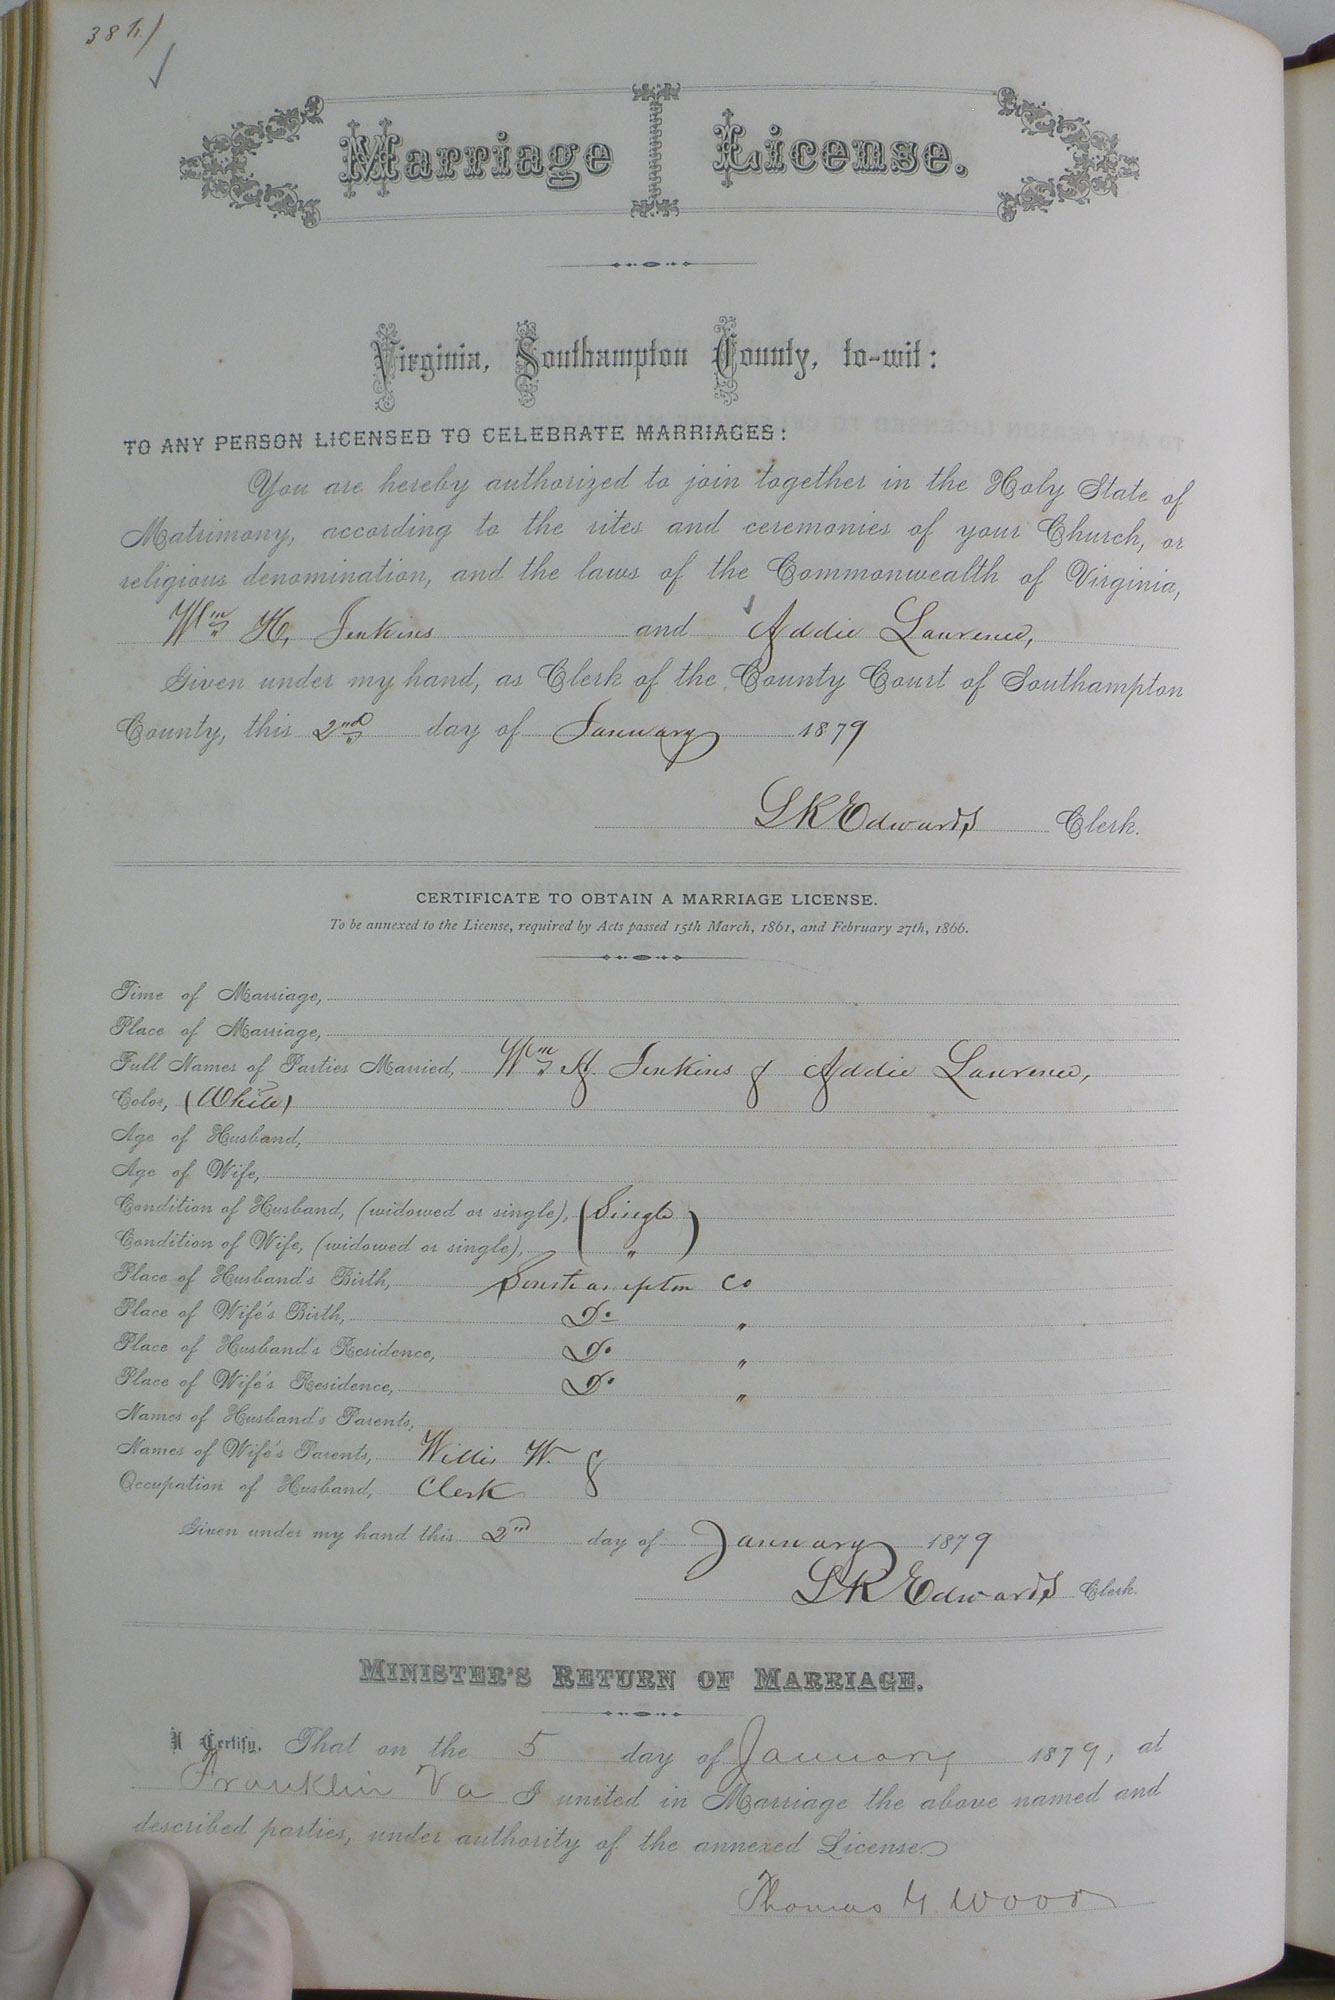 Marriage License.
Virginia, Southampton County, to-wit:
TO ANY PERSON LICENSED TO CELEBRATE MARRIAGES:
You are hereby authorized to join together in the Holy State of
Matrimony, according to the rites and ceremonies of your Church, or
religious denomination, and the laws of the Commonwealth of Virginia,
Wm H. Jenkins and Addie Laurence,
Given under my hand, as Clerk of the County Court of Southampton
County, this 2nd day of January 1879
L R Edwards Clerk.
CERTIFICATE TO OBTAIN A MARRIAGE LICENSE.
To be annexed to the License, required by Acts passed 15th March, 1861, and February 27th, 1866.
Time of Marriage,
Place of Marriage,
Full Names of Parties Married, Wm H. Jenkins & Addie Laurence,
Color, (White)
Age of Husband,
Age of Wife,
Condition of Husband, (widowed or single), (Single)
Condition of Wife, (widowed or single), "
Place of Husband's Birth, Southampton Co
Place of Wife's Birth, Do "
Place of Husband's Residence, Do "
Place of Wife's Residence, Do "
Names of Husband's Parents,
Names of Wife's Parents, Willis W. &
Occupation of Husband, Clerk
Given under my hand this 2nd day of January 1879
L R Edwards Clerk.
MINISTER'S RETURN OF MARRIAGE.
I Certify, That on the 5 day of January 1879, at
Franklin Va I united in Marriage the above named and
described parties, under authority of the annexed License.
Thomas Wood